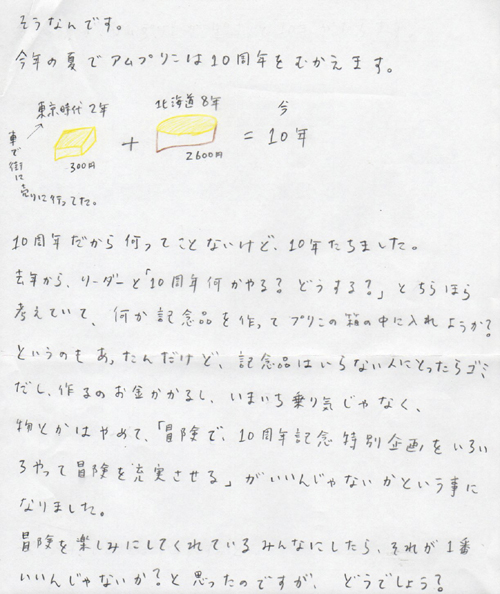 そうなんです。
今年の夏でアムプリンは10周年をむかえます。
東京時代2年
北海道8年
今
車で街に
売りに行ってた。
300円
+
2600円
= 10年
10周年だから何ってことないけど、10年たちました。
去年から、リーダーと「10周年何かやる?どうする?」とちらほら
考えていて、何か記念品を作ってプリンの箱の中に入れようか?
というのもあったんだけど、記念品はいらない人にとったらゴミ
だし、作るのお金かかるし、いまいち乗り気じゃなく、
物とかはやめて、「冒険で、10周年記念特別企画をいろい
ろやって冒険を充実させる」がいいんじゃないかという事に
なりました。
冒険を楽しみにしてくれているみんなにしたら、それが1番
いいんじゃないか?と思ったのですが、どうでしょう?